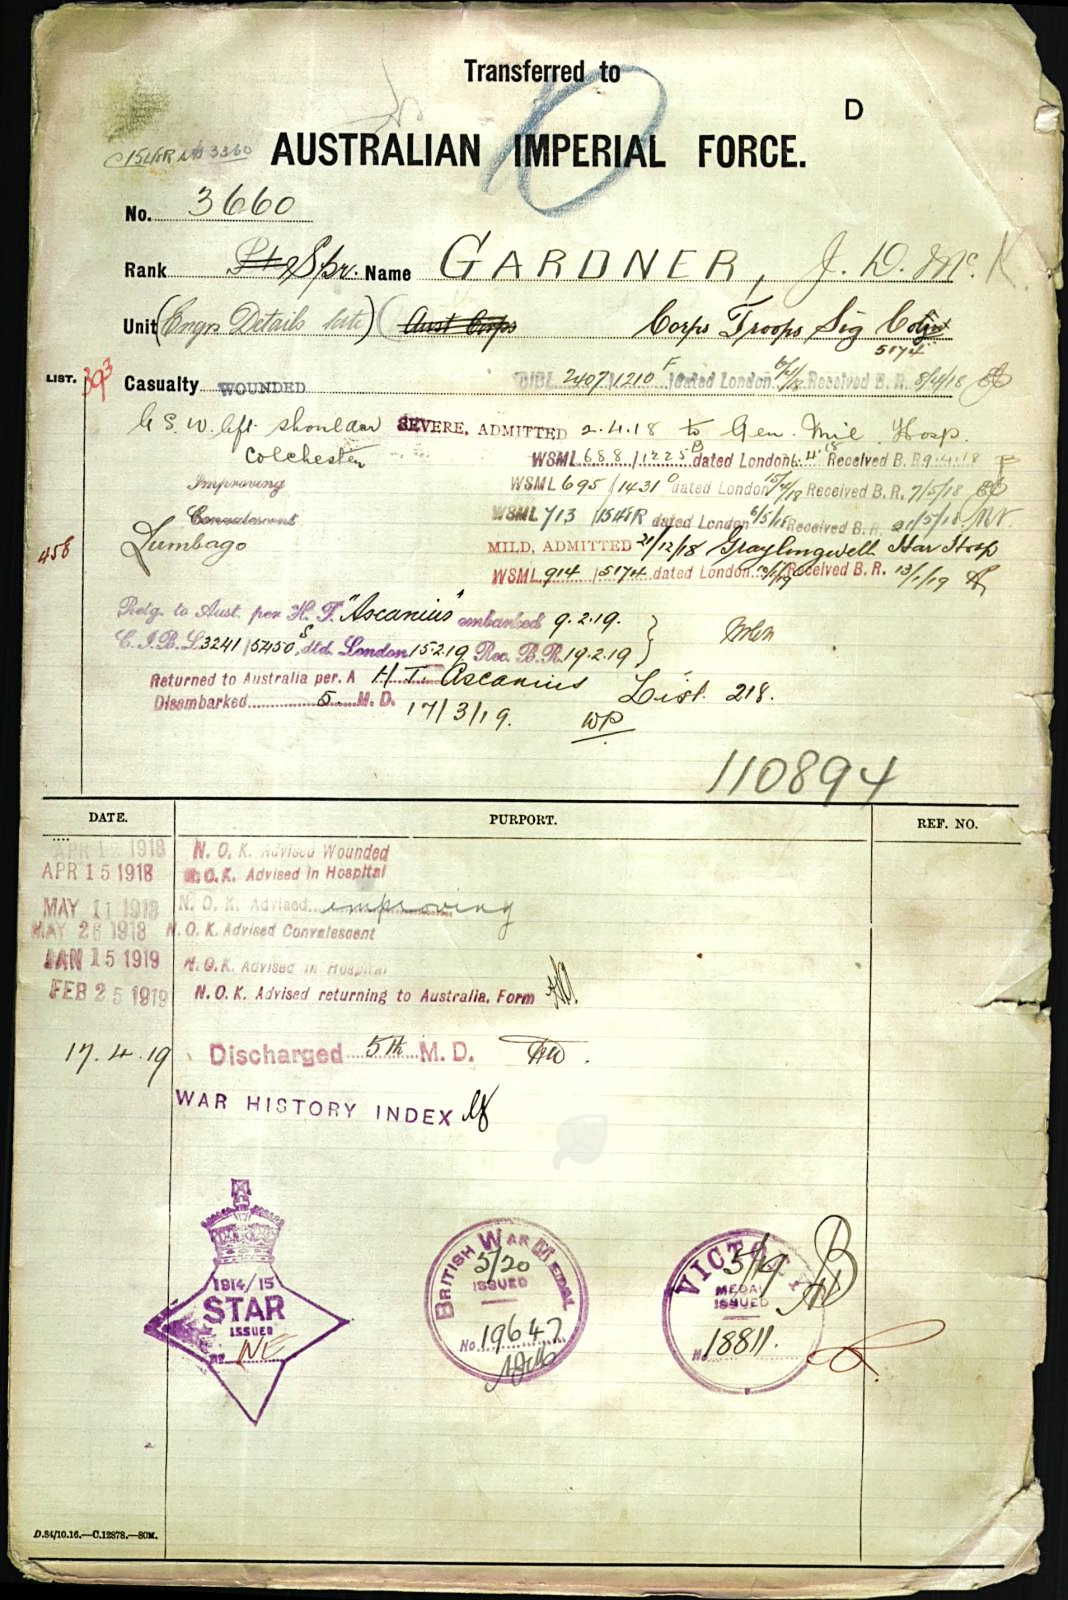 Transferred to
D
AUSTRALIAN IMPERIAL FORCE.
No. 3660
Rank Spr. Name GARDNER, J. D. McK
Unit (Engrs Details late) (Aust Corps Corps Troops Sig Coy
5174
LIST. 393 Casualty WOUNDED 2407/1210 F dated London Received B. R. 8/4/18
G. S. W. left shoulder SEVERE, ADMITTED 2.4.18 to Gen. Mil. Hosp.
Colchester WSML 688/1225 B dated London 6.4.18 Received B. R. 9.4.18
Improving WSML 695/1431 dated London 15/4/18 Received B. R. 7/5/18
Convalescent WSML 713 dated London 6/5/18 Received B. R. 21/5/18
458 Lumbago MILD, ADMITTED 21/12/18 Graylingwell War Hosp
WSML 914/5174 dated London Received B. R. 13/1/19
Retg. to Aust. per H. T. "Ascanius" embarked 9.2.19.
C. I. B. L. 3241/5450 S dtd. London 15.2.19 Rec. B. R. 19.2.19
Returned to Australia per. A H. T. Ascanius List. 218.
Disembarked 5 M. D. 17/3/19. WP
110894
DATE. PURPORT. REF. NO.
APR 12 1918 N. O. K. Advised Wounded
APR 15 1918 N. O. K. Advised in Hospital
MAY 11 1918 N. O. K. Advised improving
MAY 26 1918 N. O. K. Advised Convalescent
JAN 15 1919 N. O. K. Advised in Hospital
FEB 25 1919 N. O. K. Advised returning to Australia. Form
17.4.19 Discharged 5th M. D.
WAR HISTORY INDEX
1914/15
STAR
ISSUED
No. NE
BRITISH WAR MEDAL
5/20
ISSUED
No. 19647
VICTORY
5/19
MEDAL
ISSUED
No. 18811.
D.84/10.16.—C.12878.—80M.